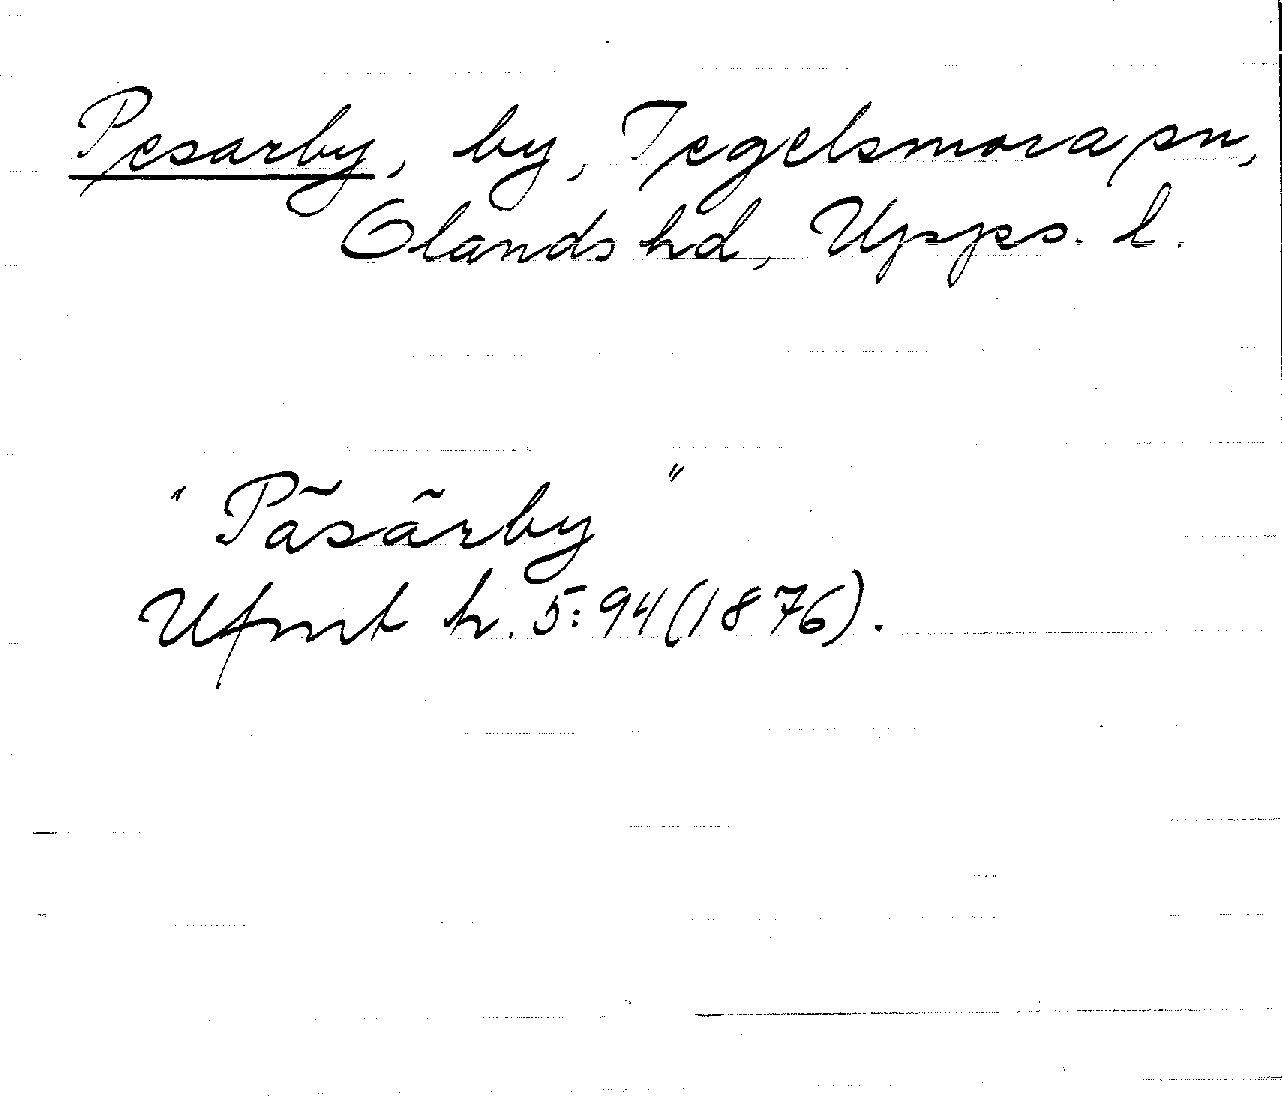 Pesarby, by, Tegelsmora sn,
Olands hd, Upps. l.
"Päsärby"
Ufmt h. 5:94 (1876).